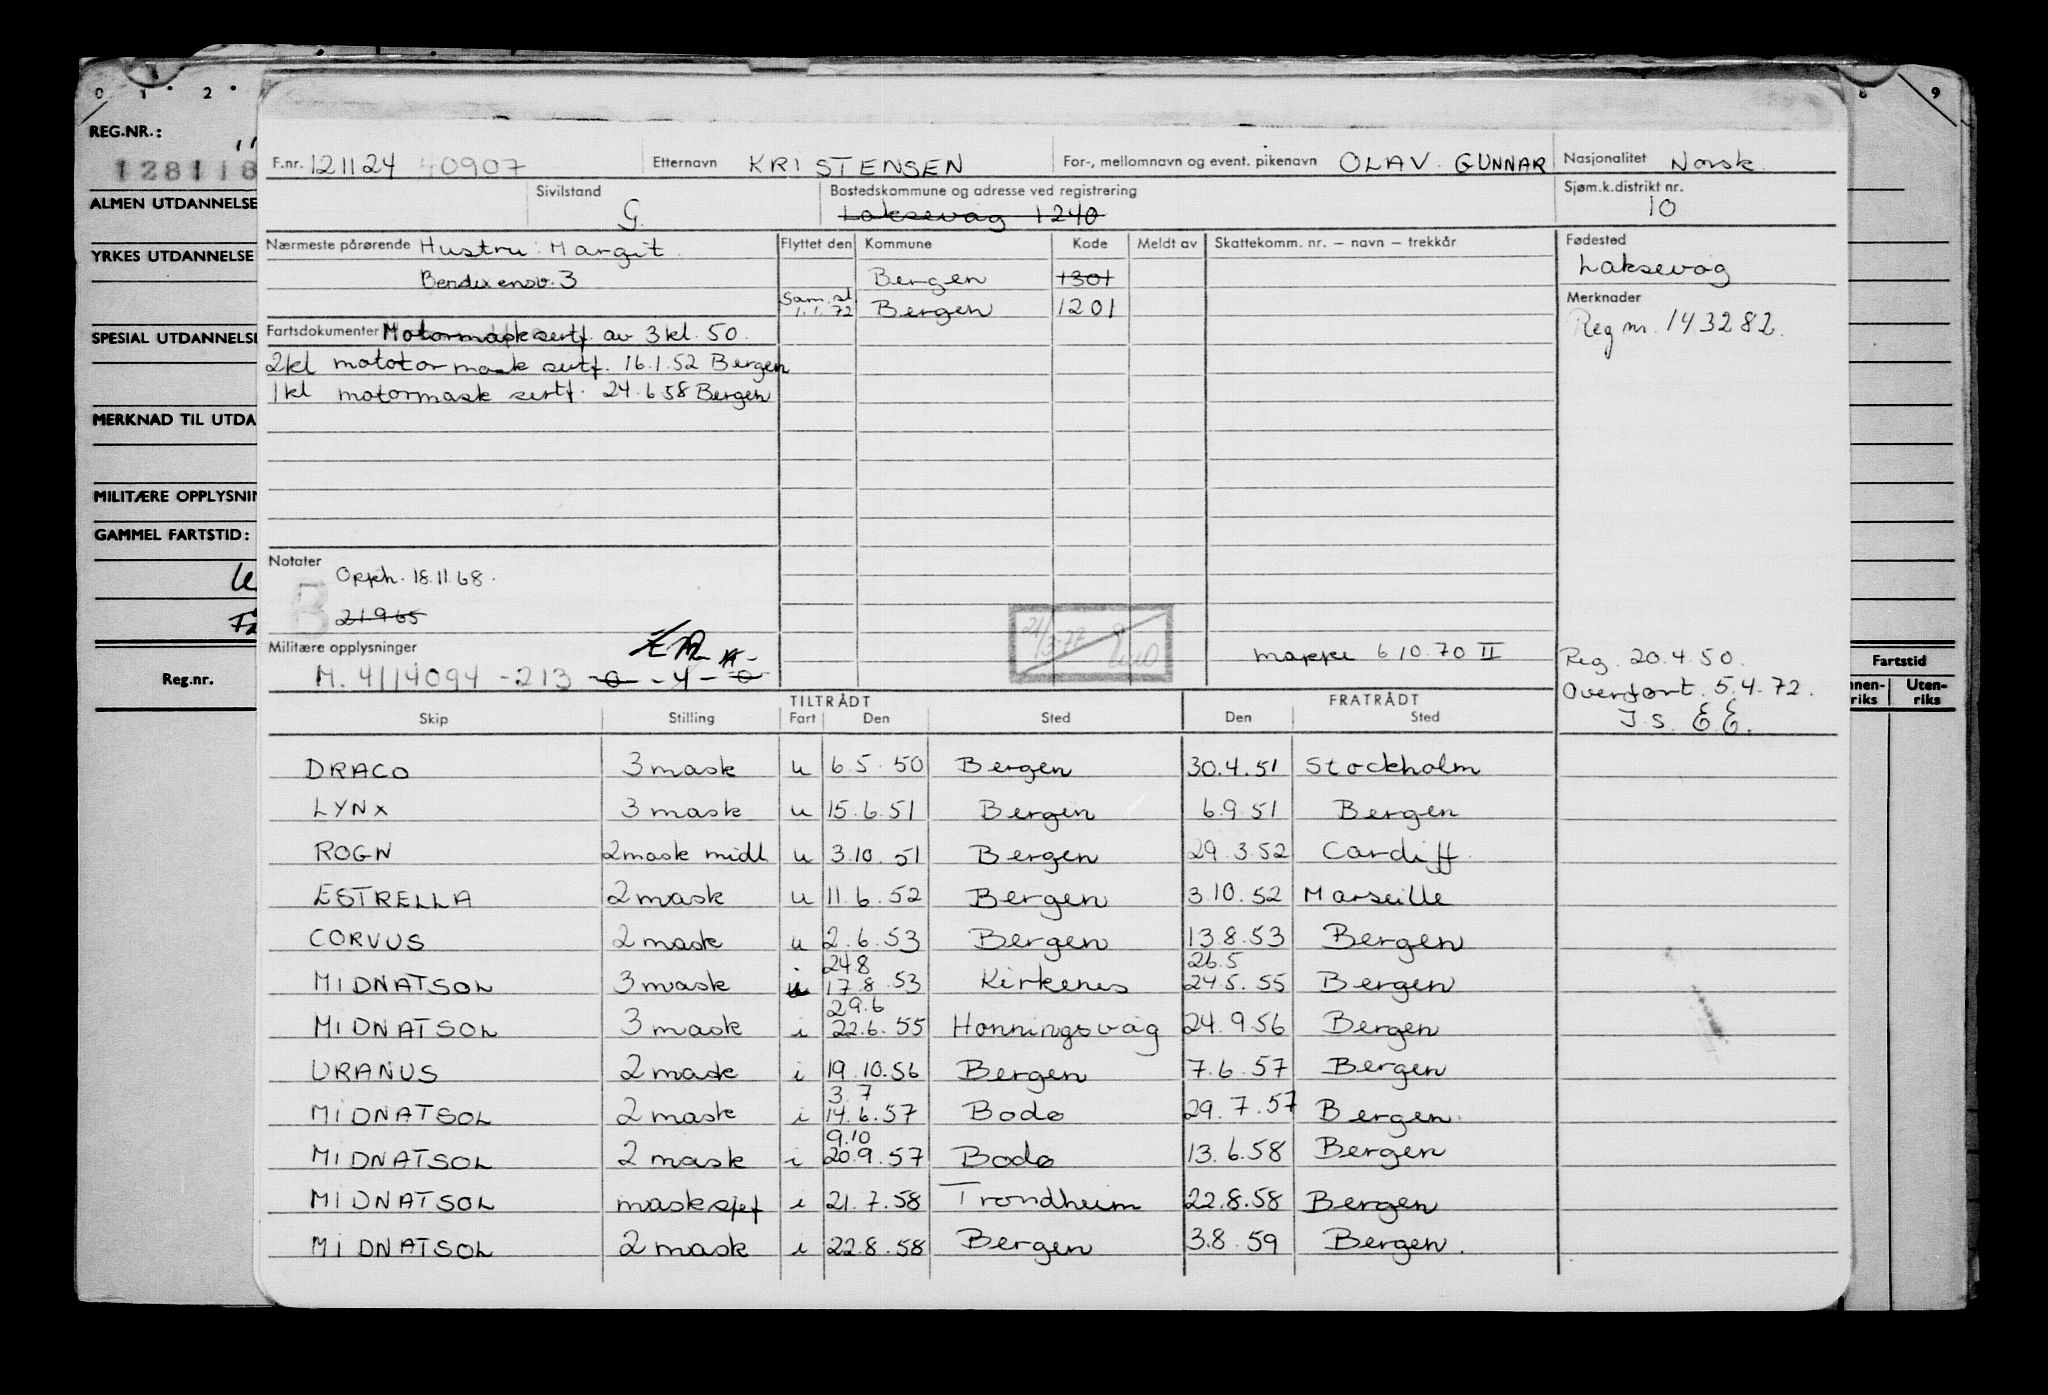 0 1 2
8 9
REG.NR.:
128118
ALMEN UTDANNELSE
YRKES UTDANNELSE
SPESIAL UTDANNELSE
MERKNAD TIL UTDA
MILITÆRE OPPLYSNIN
GAMMEL FARTSTID:
Reg.nr.
Fartstid
nnen-riks Uten-riks
F.nr. 121124 40907 Etternavn KRISTENSEN For-, mellomnavn og event. pikenavn OLAV GUNNAR Nasjonalitet Norsk
Sivilstand G. Bostedskommune og adresse ved registrering Laksevåg 1240 Sjøm.k.distrikt nr. 10
Nærmeste pårørende Hustru: Margit Flyttet den Kommune Kode Meldt av Skattekomm. nr. – navn – trekkår Fødested
Laksevåg
Bendixensv. 3 Bergen 1301
Sam.sl. 1.1.72 Bergen 1201 Merknader
Reg nr. 143282.
Fartsdokumenter Motormask sertf. av 3 kl. 50.
2kl mototor mask sertf. 16.1.52 Bergen
1kl motormask sertf. 24.6.58 Bergen
Notater Opph. 18.11.68.
B 21965
Militære opplysninger
M. 4114094 -213 -0 -4- 0
21/3-77
mappe 6.10.70 II
Reg. 20.4.50.
Overført. 5.4.72.
I S. E.E.
TILTRÅDT FRATRÅDT
Skip Stilling Fart Den Sted Den Sted
DRACO 3 mask u 6.5.50 Bergen 30.4.51 Stockholm
LYNX 3 mask u 15.6.51 Bergen 6.9.51 Bergen
ROGN 2mask midl u 3.10.51 Bergen 29.3.52 Cardiff
ESTRELLA 2 mask u 11.6.52 Bergen 3.10.52 Marseille
CORVUS 2 mask u 2.6.53 Bergen 13.8.53 Bergen
24.8 26.5
MIDNATSOL 3 mask i 17.8.53 Kirkenes 24.5.55 Bergen
29.6
MIDNATSOL 3 mask i 22.6.55 Honningsvåg 24.9.56 Bergen
URANUS 2 mask i 19.10.56 Bergen 7.6.57 Bergen
3.7
MIDNATSOL 2 mask i 14.6.57 Bodø 29.7.57 Bergen
9.10
MIDNATSOL 2 mask i 20.9.57 Bodø 13.6.58 Bergen
MIDNATSOL masksjef i 21.7.58 Trondheim 22.8.58 Bergen
MIDNATSOL 2 mask i 22.8.58 Bergen 3.8.59 Bergen.